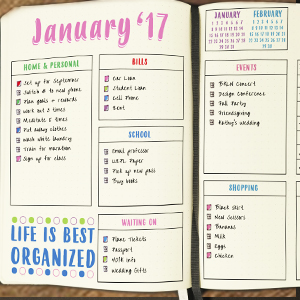 January '17
HOME & PERSONAL
Set up for September
Switch # to new phone
Plan goals + rewards
work out 3 times
Meditate 5 times
Put away clothes
wash white laundry
Train for marathon
Sign up for class
BILLS
Car Loan
Student Loan
Cell Phone
Rent
SCHOOL
Email professor
Paper
Pick up new pass
Buy books
WAITING ON
Plane Tickets
Passport
Info
Wedding Gifts
LIFE IS BEST
ORGANIZED
JANUARY FEBRUARY
EVENTS
Concert
Design Conference
Fall Party
Friendsgiving
Kathy's wedding
SHOPPING
Black Skirt
New Scissors
Bananas
Milk
Eggs
Chicken